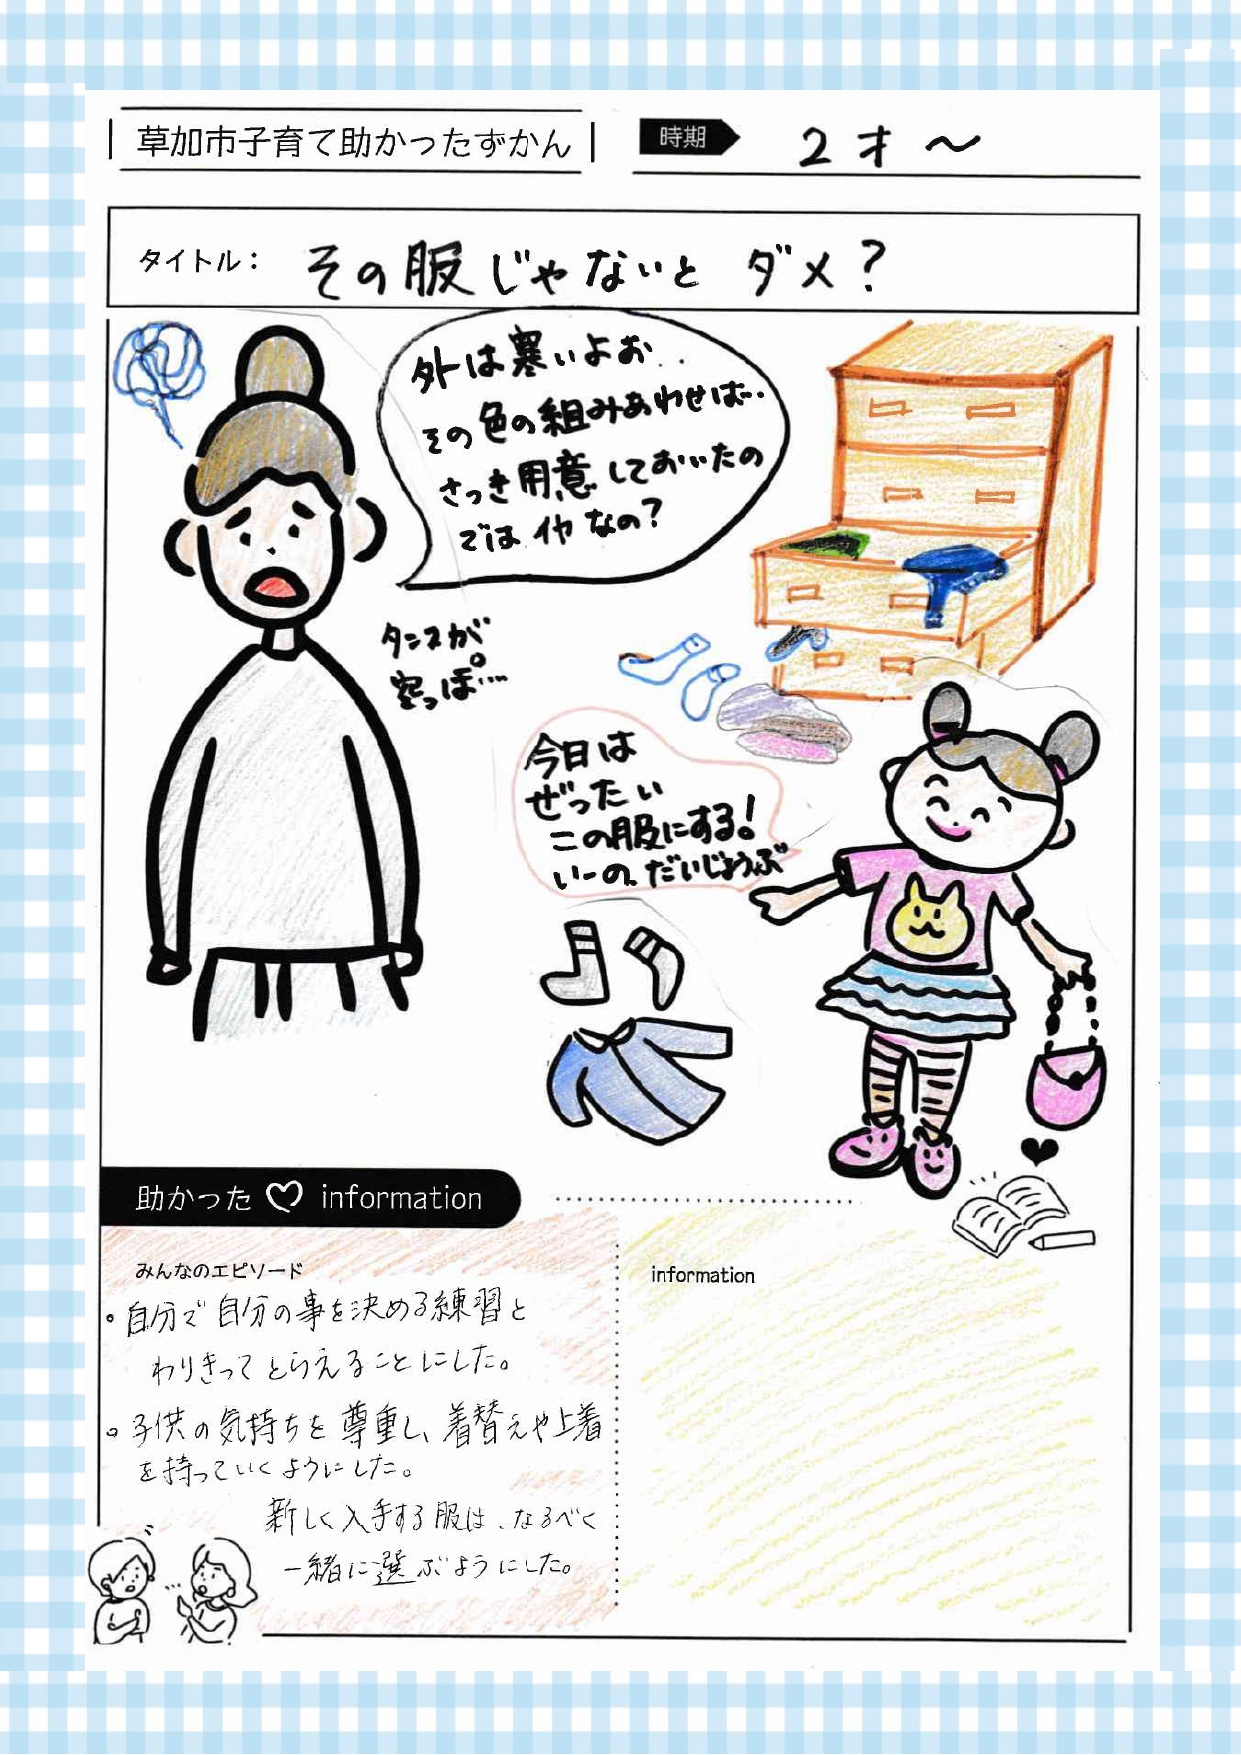 草加市子育て助かったずかん
時期
2才〜
タイトル：
その服じゃないと ダメ？
外は寒いよお..
その色の組みあわせは…
さっき用意しておいたの
ではイヤなの？
タンスが
空っぽ…。
今日は
ぜったい
この服にする！
いーの、だいじょうぶ
助かった♡information
みんなのエピソード
。自分で自分の事を決める練習と
わりきってとらえることにした。
。子供の気持ちを尊重し、着替えや上着
を持っていくようにした。
新しく入手する服は、なるべく
一緒に選ぶようにした。
information